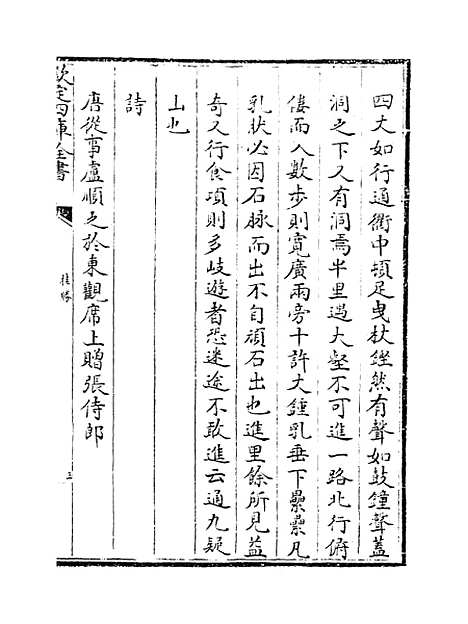 四丈如行通衢中頓足曳杖鏗然有聲如鼓鐘聲蓋
洞之下又有洞焉半里遇大壑不可進一路北行俯
僂而入數步則寛廣兩旁十許丈鍾乳垂下纍纍凡
乳狀必因石脉而出不自頑石出也進里餘所見益
奇又行食頃則多歧遊者恐迷途不敢進云通九疑
山也
詩
唐從事盧順之於東觀席上贈張侍郎
欽定四庫全書
桂勝
三